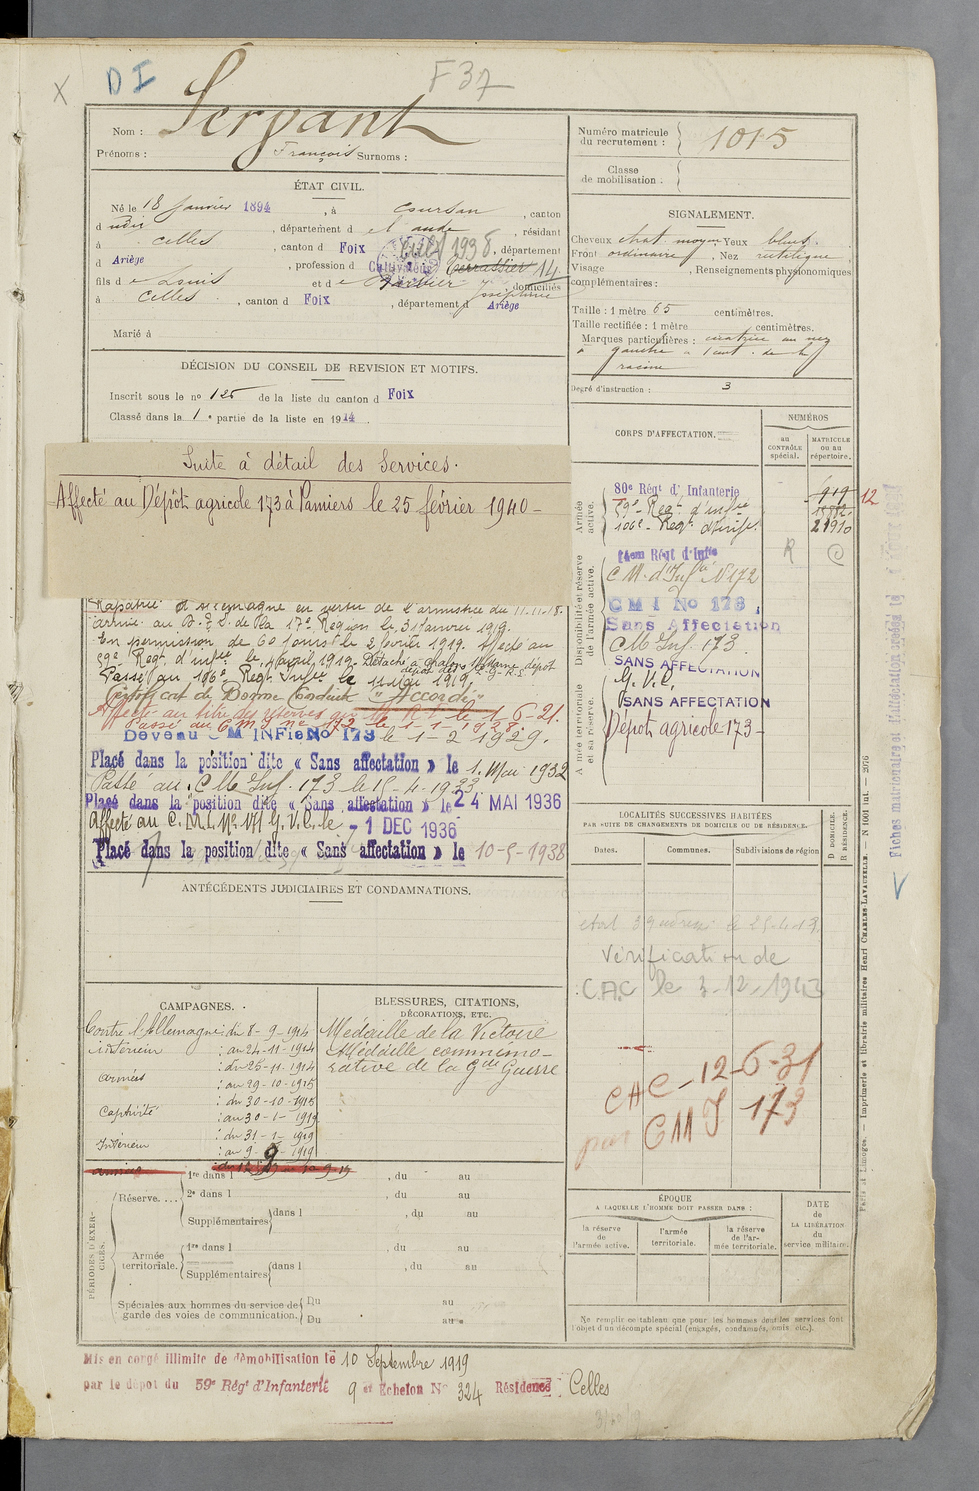 X
D I
F 37
Nom : Servant
Prénoms : François Surnoms :
ÉTAT CIVIL.
Né le 18 Janvier 1894, à Coursan, canton
d udit, département de l'aude, résidant
à Celles, canton d Foix, département
d Ariège, profession d Cultivateur Terrassier 14
fils de Louis et de Barbier Joséphine domiciliés
à Celles, canton d Foix, département d Ariège
Marié à
DÉCISION DU CONSEIL DE REVISION ET MOTIFS.
Inscrit sous le no 125 de la liste du canton d Foix
Classé dans le 1e partie de la liste en 1914.
Suite à détail des Services.
Affecté au Dépôt agricole 173 à Pamiers le 25 février 1940 -
Rapatrié d'Allemagne en vertu de l'armistice du 11.11.18.
arrivé au D. de la 17e Région le 31 Janvier 1919.
En permission de 60 jours le 2 février 1919. Affecté au
59e Regt. d'infie le avril 1919. Détaché à
Passé au 106e Regt Infie le 11 1919.
Certificat de Bonne Conduite "Accordé"
Affecté au titre des réserves au 14e R.I. le 1-6-21.
Passé au C M I No 172 le 1-1-1928.
Devenu C M INFie No 173 le 1-2-1929.
Placé dans la position dite « Sans affectation » le 1. Mai 1932
Passé au C Mb Inf. 173 le 15-4-1933
Placé dans la position dite « Sans affectation » le 24 MAI 1936
Affecté au C. M. I. No G.V.C. le - 1 DEC 1936
Placé dans la position dite « Sans affectation » le 10-5-1938
ANTÉCÉDENTS JUDICIAIRES ET CONDAMNATIONS.
CAMPAGNES.
Contre l'Allemagne : du 8-9-1914
intérieur : au 24-11-1914
: du 25-11-1914
armées : au 29-10-1915
: du 30-10-1915
Captivité : au 30-1-1919
: du 31-1-1919
Intérieur : au 9-9-1919
BLESSURES, CITATIONS,
DÉCORATIONS, ETC.
Médaille de la Victoire
Médaille commémo-
rative de la Gde Guerre
PÉRIODES D'EXERCICES.
Réserve....
1re dans l , du au
2e dans l , du au
Supplémentaires dans l , du au
Armée
territoriale.
1re dans l , du au
Supplémentaires dans l , du au
Spéciales aux hommes du service de
garde des voies de communication.
Du au
Du au
Mis en congé illimité de démobilisation le 10 Septembre 1919
par le dépôt du 59e Régt d'Infanterie 9 et Echelon No 324 Résidence Celles
Numéro matricule
du recrutement : 1015
Classe
de mobilisation :
SIGNALEMENT.
Cheveux chat. moyen Yeux bleus.
Front ordinaire, Nez rectiligne
Visage , Renseignements physionomiques
complémentaires :
Taille : 1 mètre 65 centimètres.
Taille rectifiée : 1 mètre centimètres.
Marques particulières : cicatrice au nez
à gauche à 1 cent. de la
racine
Degré d'instruction : 3
CORPS D'AFFECTATION.
NUMÉROS
au
CONTRÔLE
spécial.
MATRICULE
ou au
répertoire.
Armée
active.
80e Régt d'Infanterie 919 12
59e Regt. d'infie
106e Regt d'infie 21910
Disponibilité et réserve
de l'armée active.
14em Régt d'Infie R
C M. d'Infie No 172
C M I No 173
Sans Affectation
C Mb Inf. 173
SANS AFFECTATION
Armée territoriale
et sa réserve.
G.V.C.
SANS AFFECTATION
Dépôt agricole 173 -
LOCALITÉS SUCCESSIVES HABITÉES
PAR SUITE DE CHANGEMENTS DE DOMICILE OU DE RÉSIDENCE.
Dates.
Communes.
Subdivisions de région
D DOMICILE.
R RÉSIDENCE.
Vérification de
C.A.C le 3-12-1943
CAC - 12-6-31
par CMI 173
ÉPOQUE
A LAQUELLE L'HOMME DOIT PASSER DANS :
la réserve
de
l'armée active.
l'armée
territoriale.
la réserve
de l'ar-
mée territoriale.
DATE
de
LA LIBÉRATION
du
service militaire.
Ne remplir ce tableau que pour les hommes dont les services font
l'objet d'un décompte spécial (engagés, condamnés, omis, etc.).
Paris et Limoges. — Imprimerie et librairie militaires Henri CHARLES-LAVAUZELLE. — N 1001 int. — 2076